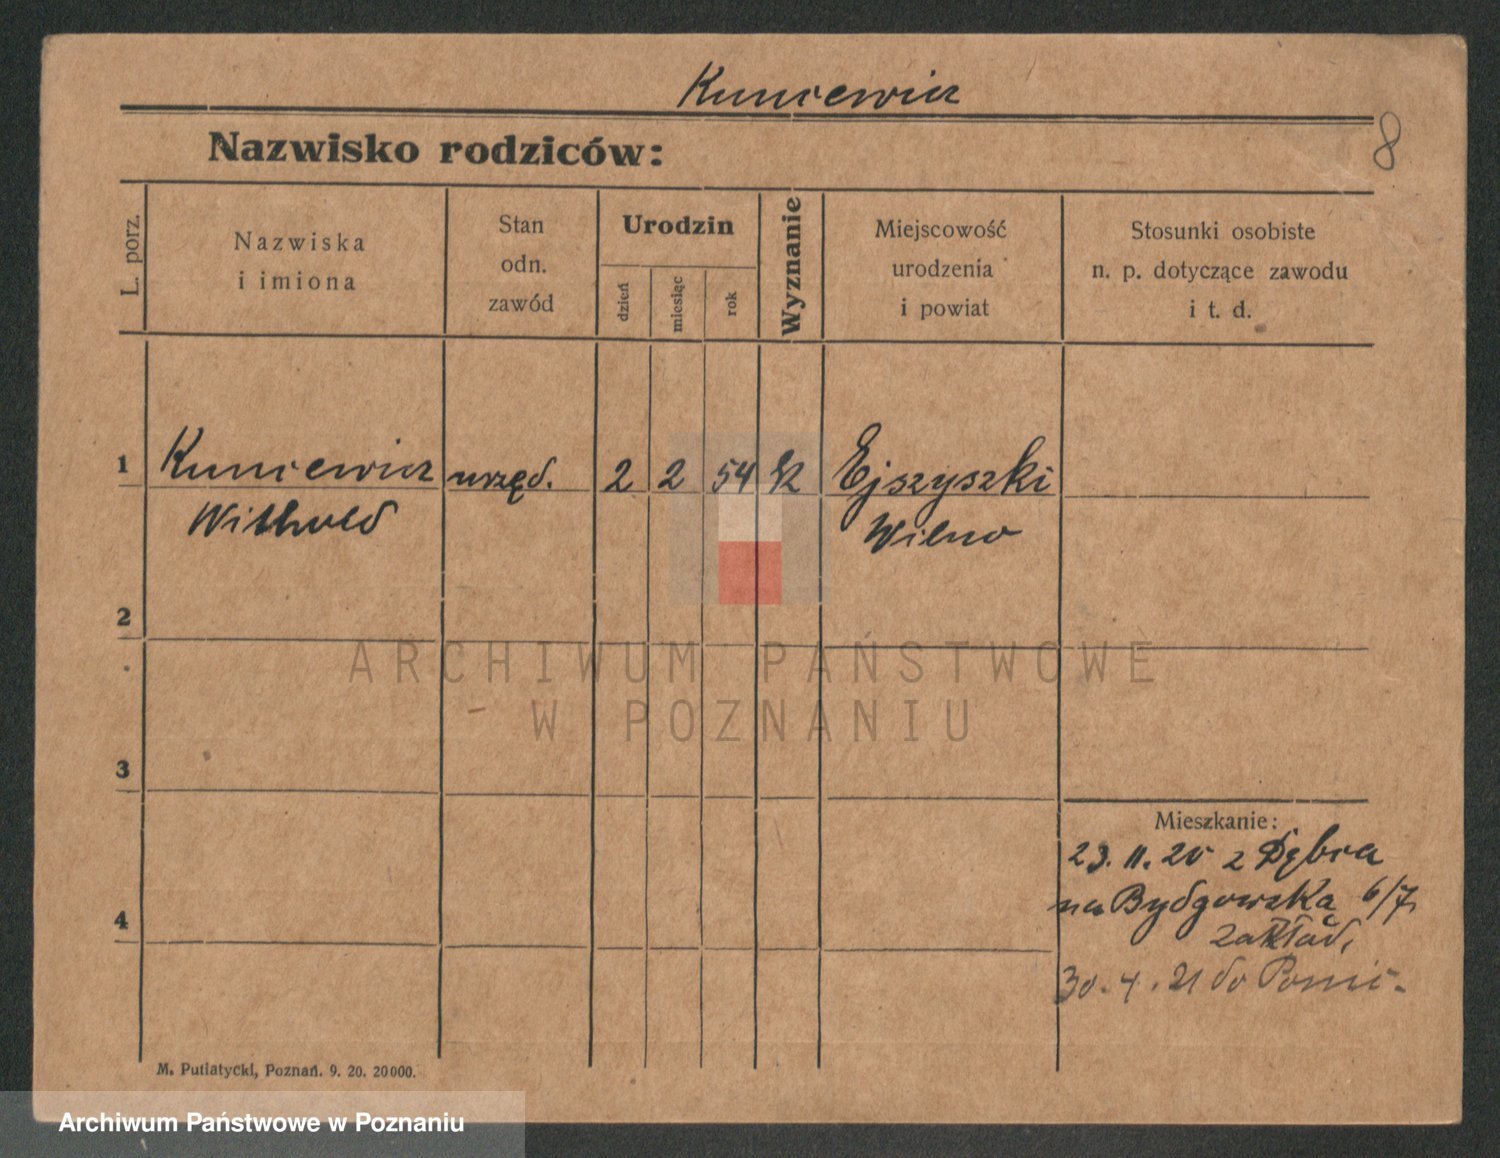 Kuncewicz
8
Nazwisko rodziców:
L. porz.
Nazwiska
i imiona
Stan
odn.
zawód
Urodzin
dzień
miesiąc
rok
Wyznanie
Miejscowość
urodzenia
i powiat
Stosunki osobiste
n. p. dotyczące zawodu
i t. d.
1 Kuncewicz urzęd. 2 2 54 Ejszyszki
Withold Wilno
2
3
4
ARCHIWUM PAŃSTWOWE
W POZNANIU
Mieszkanie:
23. 11. 20 z Dębca
na Bydgowska 6/7
Zakład.
30. 4. 21 do
M. Putiatycki, Poznań. 9. 20. 20000.
Archiwum Państwowe w Poznaniu